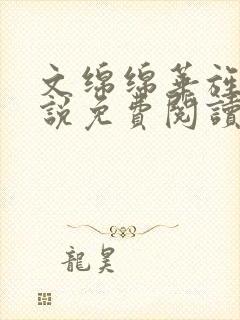 文绵绵华旌
說免費閱讀
龍昊